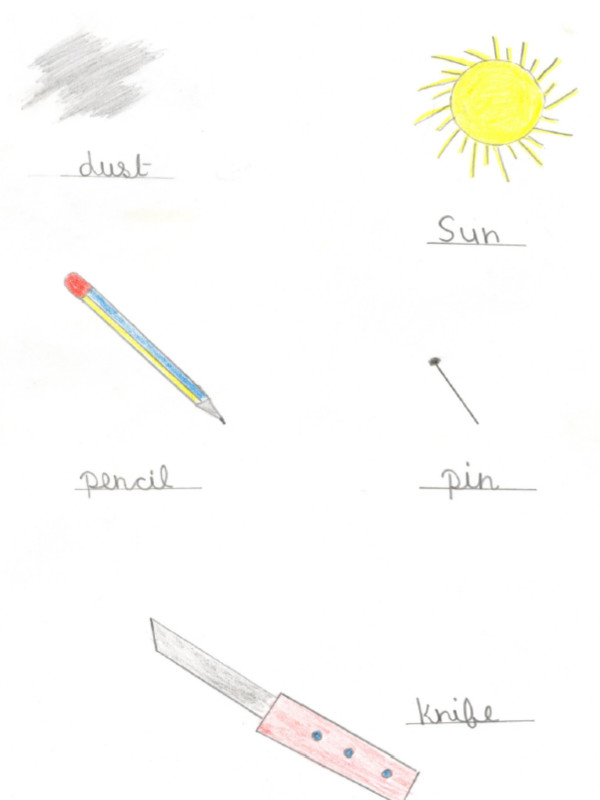 dust
Sun
pencil
pin
knife